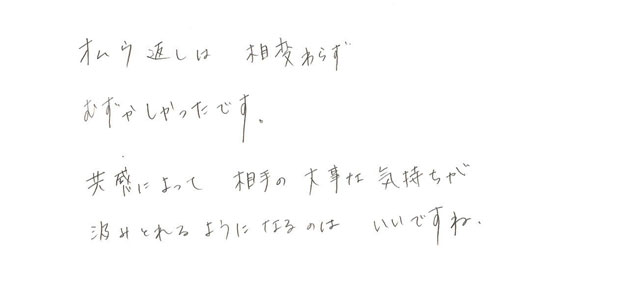 オムウ返しは 相変わらず
むずかしかったです。
共感によって 相手の大事な気持ちが
汲みとれるようになるのは いいですね.